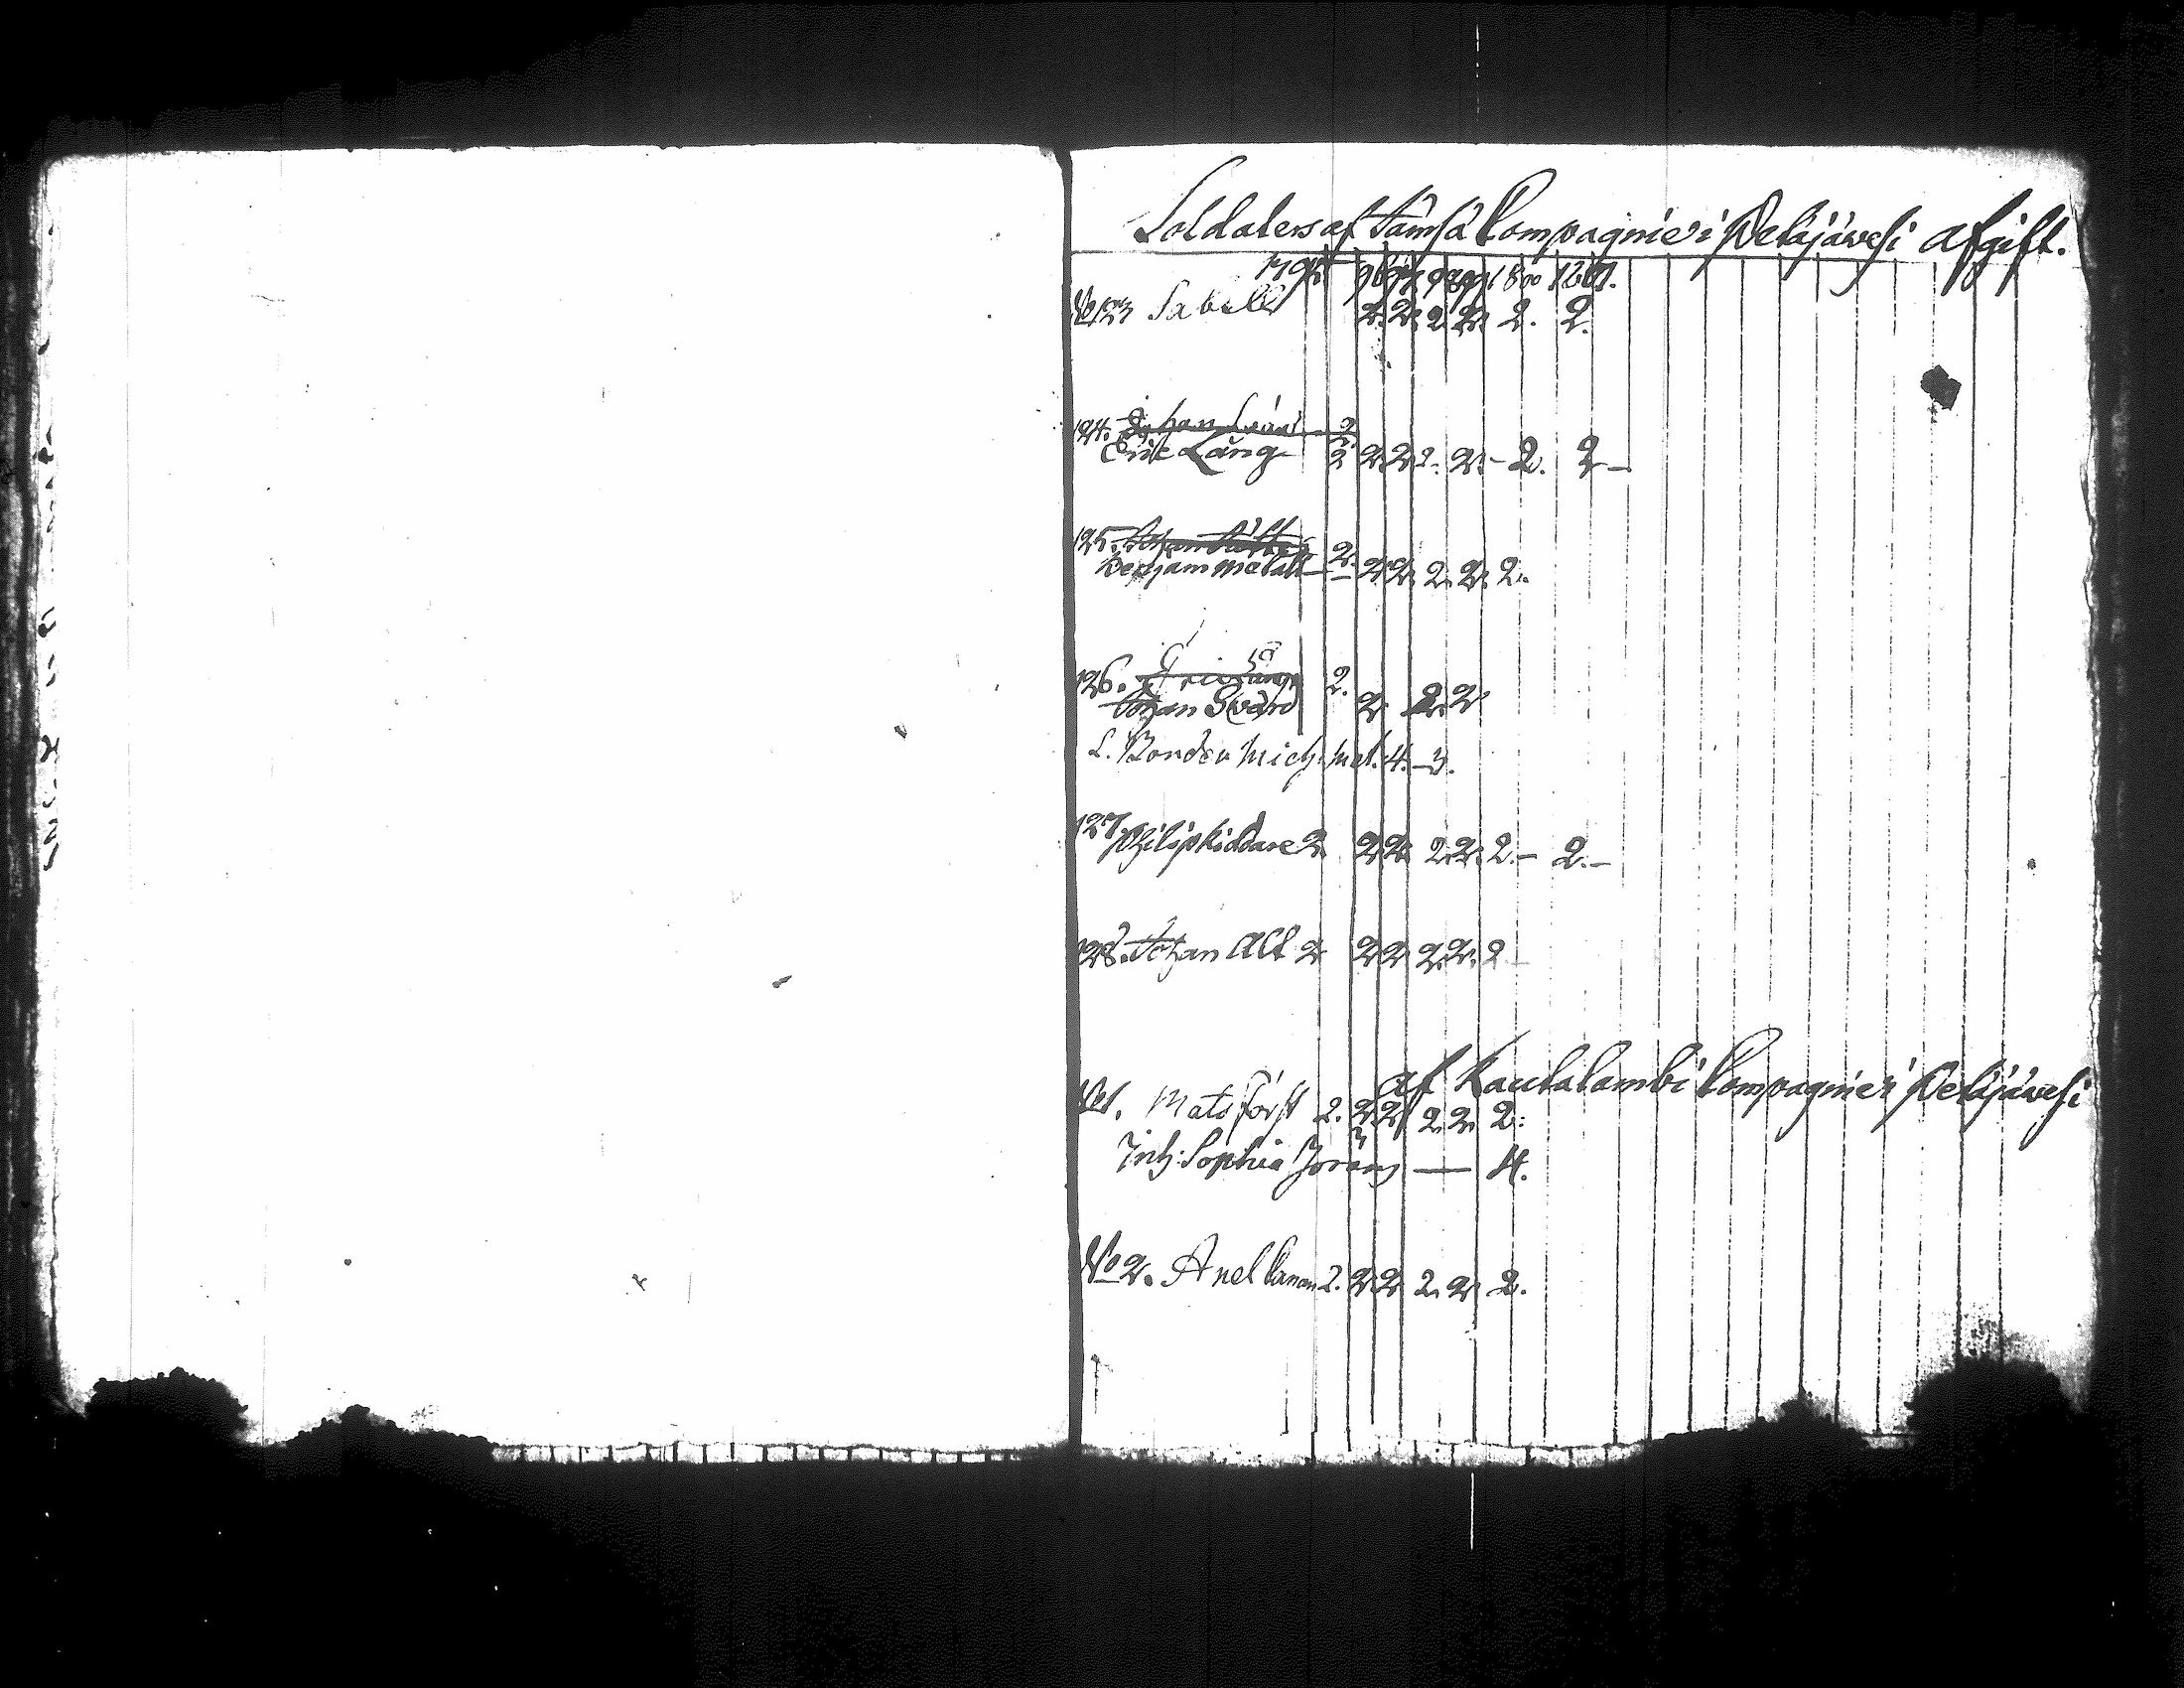 Soldatens af Jämsä Compagnie i Petäjäwesi afgift.
1795 96 97 98 99 1800 1801.
No 123 Sabell 2. 2. 2 2. 2. 2.
124. Johan Svärd 2
Erik Lång 2 2. 2. 2. 2. – 2. 2 –
125. Johan
Benjam Metall – 2. 2. 2. 2. 2. 2.
126. Eric Lång 2.
Johan Svärd 2. 2. 2
S. Bonden Mich. Mat. 4. – 3.
127. Philip Kiddare 2. 2. 2. 2. 2. 2. – 2. –
128. Johan Alt 2 2 2. 2. 2. 2
af Rautalambi Compagnie i Petäjäwesi
No 1. Mats Först 2. 2. 2. 2. 2. 2.
Inh: Sophia Jöransd — 4.
No 2. Axel Canon 2. 2. 2. 2. 2. 2.